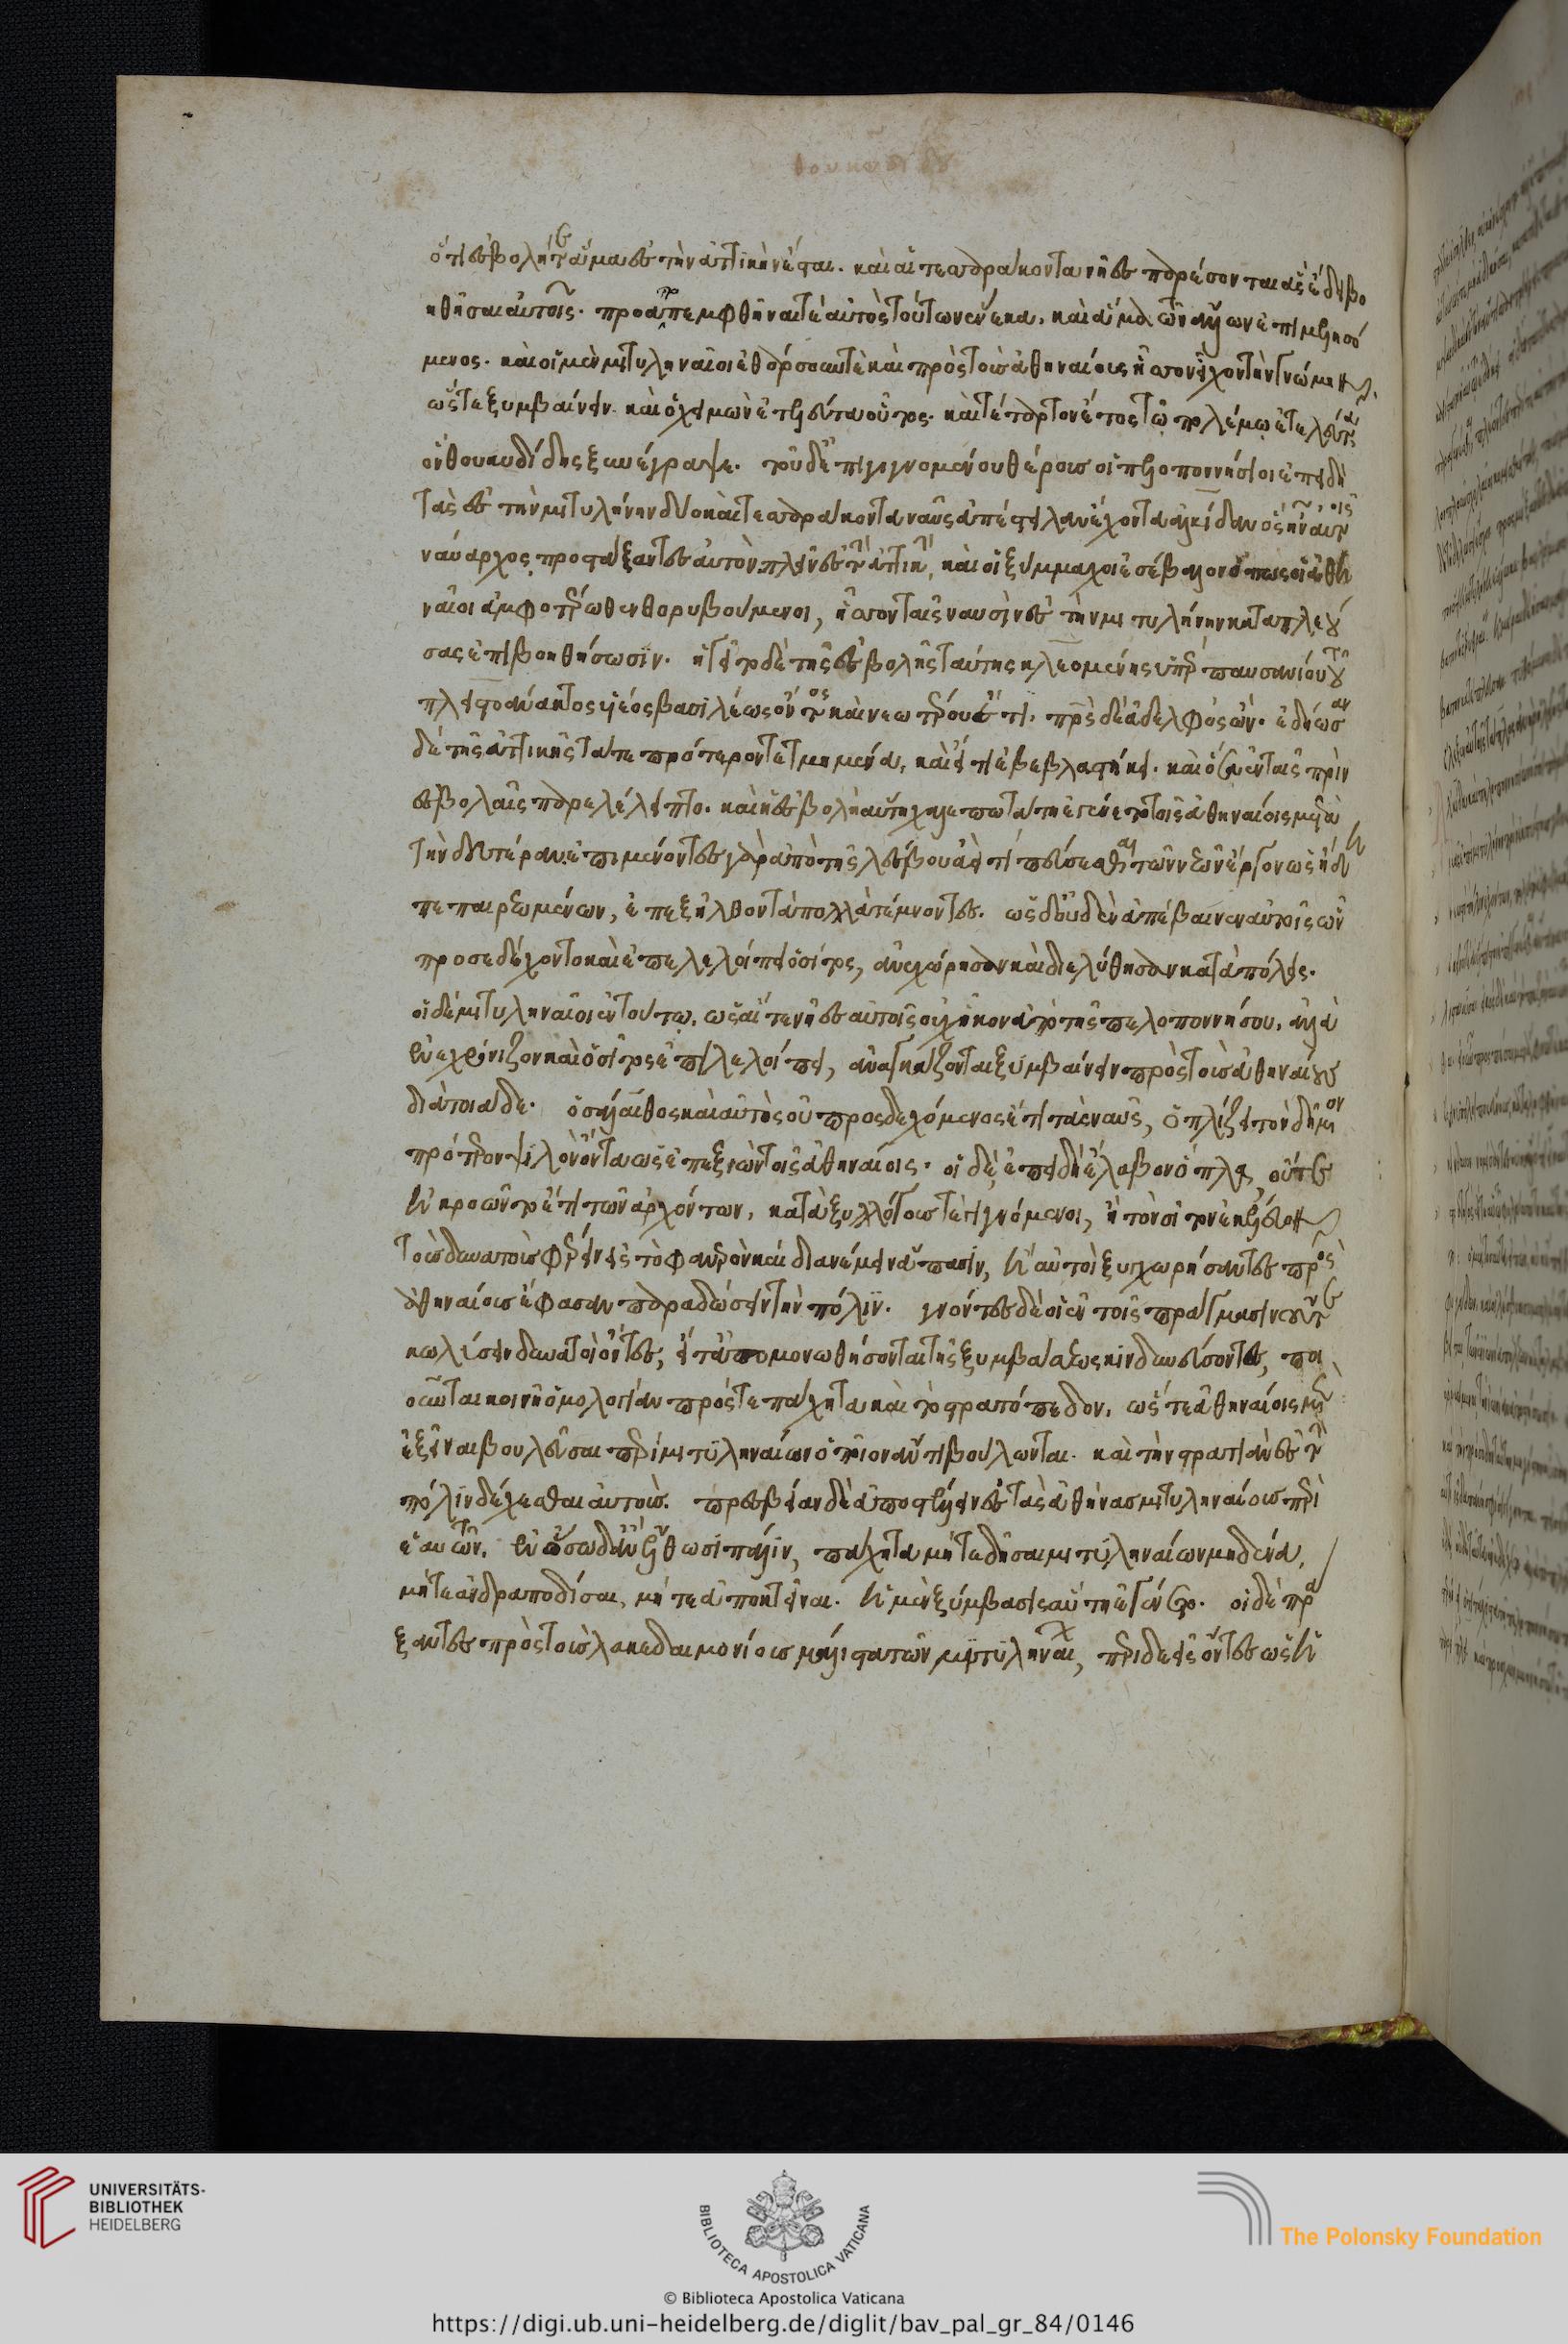 ὅτι ἐσβολή τε ἅμα ἐς τὴν ἀττικὴν ἔσται. καὶ αἱ τεσσαράκοντα νῆες παρέσονται ἃς ἔδει βο
ηθῆσαι αὐτοῖς. προαποπεμφθῆναί τε αὐτὸς τούτων ἕνεκα, καὶ ἅμα τῶν ἄλλων ἐπιμελησό
μενος. καὶ οἱ μὲν μιτυληναῖοι ἐθάρσουν τε καὶ πρὸς τοὺς ἀθηναίους ἧσσον εἶχον τὴν γνώμην
ὥστε ξυμβαίνειν. καὶ ὁ χειμὼν ἐτελεύτα οὗτος. καὶ τέταρτον ἔτος τῷ πολέμῳ ἐτελεύτα
ὃν θουκυδίδης ξυνέγραψε. τοῦ δ' ἐπιγιγνομένου θέρους οἱ πελοποννήσιοι ἐπειδὴ
τὰς ἐς τὴν μιτυλήνην δύο καὶ τεσσαράκοντα ναῦς ἀπέστειλαν ἔχοντα ἀλκίδαν ὃς ἦν αὐτοῖς
ναύαρχος προστάξαντες αὐτὸν πλεῖν ἐς τὴν ἀττικὴν, καὶ οἱ ξύμμαχοι ἐσέβαλον ὅπως οἱ ἀθη
ναῖοι ἀμφοτέρωθεν θορυβούμενοι, ἧσσον ταῖς ναυσὶν ἐς τὴν μιτυλήνην καταπλεού
σας ἐπιβοηθήσωσιν. ἡγεῖτο δὲ τῆς ἐσβολῆς ταύτης κλεομένης ὑπὲρ παυσανίου τοῦ
πλειστοάνακτος υἱέος βασιλέως ὄντος καὶ νεωτέρου ἔτι. πατρὸς δὲ ἀδελφὸς ὤν. ἐδῄωσαν
δὲ τῆς ἀττικῆς τά τε πρότερον τετμημένα, καὶ εἴ τι ἐβεβλαστήκει. καὶ ὅσα ἐν ταῖς πρὶν
ἐσβολαῖς παρελέλειπτο. καὶ ἡ ἐσβολὴ αὕτη χαλεπωτάτη ἐγένετο τοῖς ἀθηναίοις μετὰ
τὴν δευτέραν. ἐπιμένοντες γὰρ ἀπὸ τῆς λέσβου ἀεί τι πεύσεσθαι τῶν νεῶν ἔργον ὡς ἤδη
πεπαιρεωμένων, ἐπεξῆλθον τὰ πολλὰ τέμνοντες. ὡς δ' οὐδὲν ἀπέβαινεν αὐτοῖς ὧν
προσεδέχοντο καὶ ἐπελελοίπει ὁ σῖτος, ἀνεχώρησαν καὶ διελύθησαν κατὰ πόλεις.
οἱ δὲ μιτυληναῖοι ἐν τούτῳ, ὡς αἵ τε νῆες αὐτοῖς οὐχ ἧκον ἀπὸ τῆς πελοποννήσου, ἀλλὰ
ἐνεχρόνιζον καὶ ὁ σῖτος ἐπιλελοίπει, ἀναγκάζονται ξυμβαίνειν πρὸς τοὺς ἀθηναίους
διὰ τοιάδε. ὁ σάλαιθος καὶ αὐτὸς οὐ προσδεχόμενος ἔτι τὰς ναῦς, ὁπλίζει τὸν δῆμον
πρότερον ψιλὸν ὄντα ὡς ἐπεξιὼν τοῖς ἀθηναίοις. οἱ δὲ, ἐπειδὴ ἔλαβον ὅπλα, οὔτε
ἠκροῶντο ἔτι τῶν ἀρχόντων, κατὰ ξυλλόγους τε γιγνόμενοι, ἢ τὸν σῖτον ἐκέλευον
τοὺς δυνατοὺς φέρειν ἐς τὸ φανερὸν καὶ διανέμειν ἅπασιν, ἢ αὐτοὶ ξυγχωρήσαντες πρὸς
ἀθηναίους ἔφασαν παραδώσειν τὴν πόλιν. γνόντες δὲ οἱ ἐν τοῖς πράγμασιν οὔτε
κωλύσειν δυνατοὶ ὄντες, εἴ τ' ἀπομονωθήσονται τῆς ξυμβάσεως κινδυνεύσοντες, ποι
οῦνται κοινῇ ὁμολογίαν πρός τε πάχητα καὶ τὸ στρατόπεδον, ὥστε ἀθηναίοις μὲν
ἐξεῖναι βουλεῦσαι περὶ μιτυληναίων ὁποῖον ἄν τι βούλωνται. καὶ τὴν στρατιὰν ἐς τὴν
πόλιν δέχεσθαι αὐτούς. πρεσβείαν δὲ ἀποστέλλειν ἐς τὰς ἀθήνας μιτυληναίους περὶ
ἑαυτῶν. ἐν ὅσῳ δ' ἂν ἔλθωσι πάλιν, πάχητα μήτε δῆσαι μιτυληναίων μηδένα,
μήτε ἀνδραποδίσαι, μήτε ἀποκτεῖναι. ἡ μὲν ξύμβασις αὕτη ἐγένετο. οἱ δὲ πρά
ξαντες πρὸς τοὺς λακεδαιμονίους μάλιστα τῶν μιτυληναίων, περιδεεῖς ὄντες ὡς ἡ
UNIVERSITÄTS-
BIBLIOTHEK
HEIDELBERG
BIBLIOTECA APOSTOLICA VATICANA
The Polonsky Foundation
© Biblioteca Apostolica Vaticana
https://digi.ub.uni-heidelberg.de/diglit/bav_pal_gr_84/0146